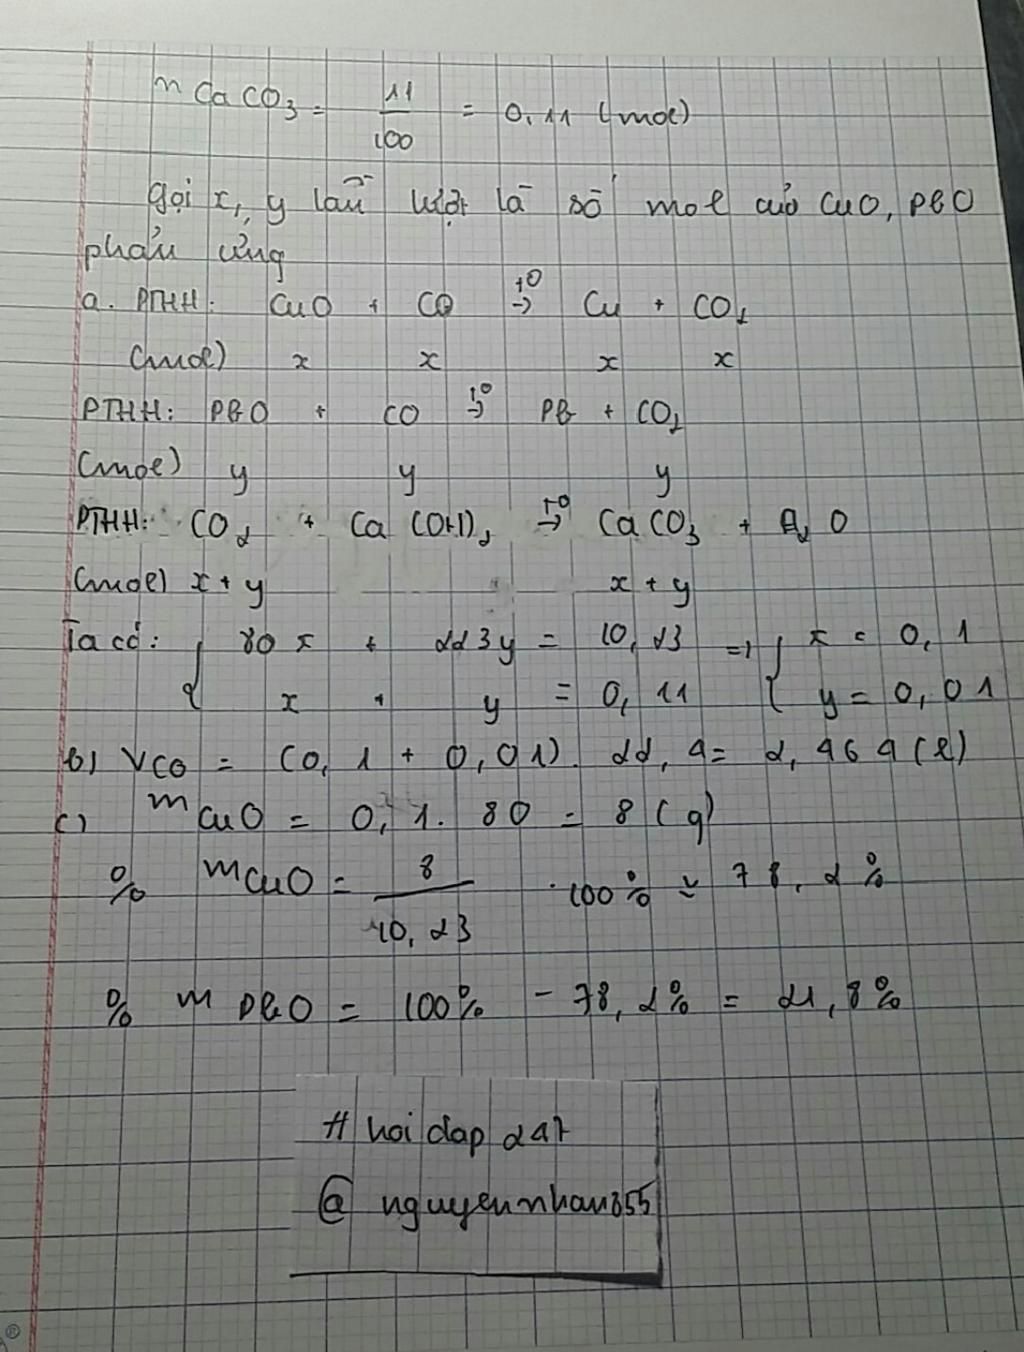 n CaCO3 = 11/100 = 0,11 (mol)
Gọi x, y lần lượt là số mol của CuO, PbO
phản ứng
a. PTHH: CuO + CO t°→ Cu + CO2
(mol) x x x x
PTHH: PbO + CO t°→ Pb + CO2
(mol) y y y
PTHH: CO2 + Ca(OH)2 t°→ CaCO3 + H2O
(mol) x + y x + y
Ta có: { 80x + 223y = 10,23 => { x = 0,1
x + y = 0,11 { y = 0,01
b) VCO = (0,1 + 0,01). 22,4 = 2,464 (l)
c) mCuO = 0,1. 80 = 8 (g)
% mCuO = 8/10,23 .100% ≈ 78,2%
% m PbO = 100% - 78,2% = 21,8%
# hoidap247
@ nguyennhan855